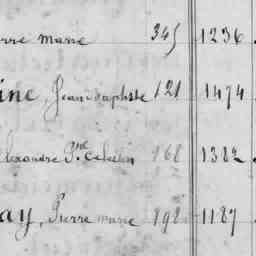 erre marie 345 1236
ine, Jean Baptiste 121 1474
Alexandre Pre Celestin 168 1382
ay, Pierre marie 198 1187